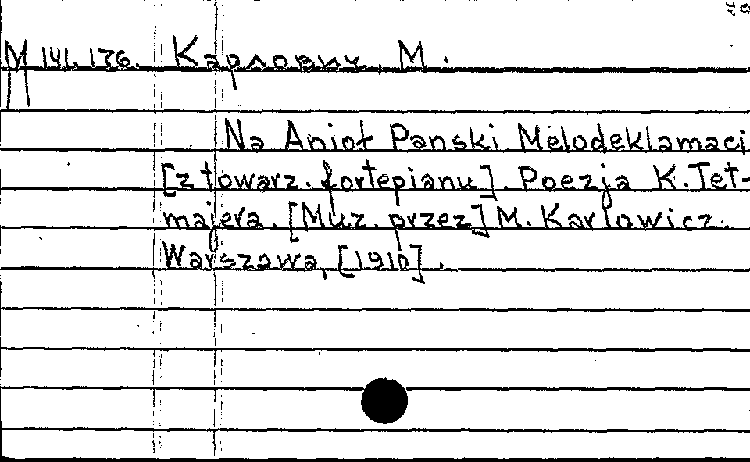 М 141.176. Карлович, М.
Na Anioł Panski Melodeklamaci
[z towarz. fortepianu]. Poezja K. Tet-
majera. [Muz. przez] M. Karłowicz.
Warszawa, [1910].